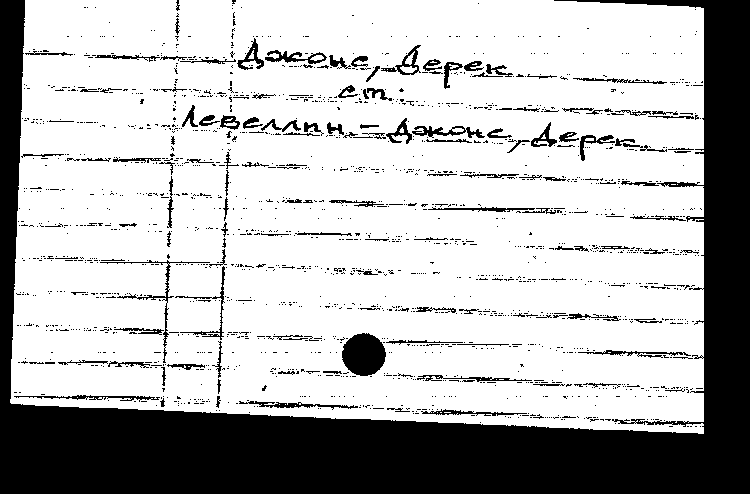 Джонс, Дерек
ст.
Левеллин. - Джонс, Дерек